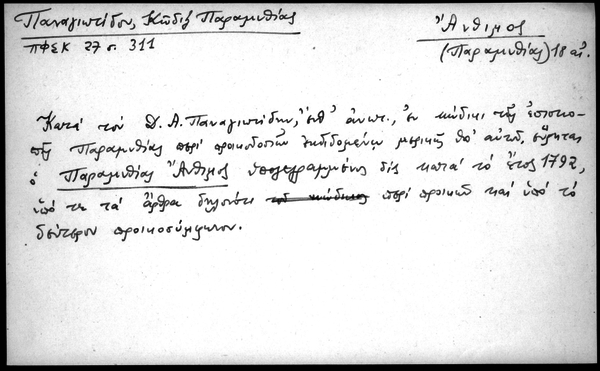 Παναγιωτίδου, Κῶδιξ Παραμυθίας
ΠΦΣΚ 27 σ. 311
Ἄνθιμος
(Παραμυθίας) 18 αἰ.
Κατὰ τὸν Δ. Α. Παναγιωτίδην, ἔνθ' ἀνωτ., ἐν κώδικι τῆς ἐπισκο-
πῆς Παραμυθίας περὶ προικοδοσιῶν ἐκδιδομένῳ μερικῶς ὑπ' αὐτοῦ, εὕρηται
ὁ Παραμυθίας Ἄνθιμος ὑπογεγραμμένος δὶς κατὰ τὸ ἔτος 1792,
ὑπό τε τὰ ἄρθρα δηλονότι περὶ προικῶν καὶ ὑπὸ τὸ
δεύτερον προικοσύμφωνον.